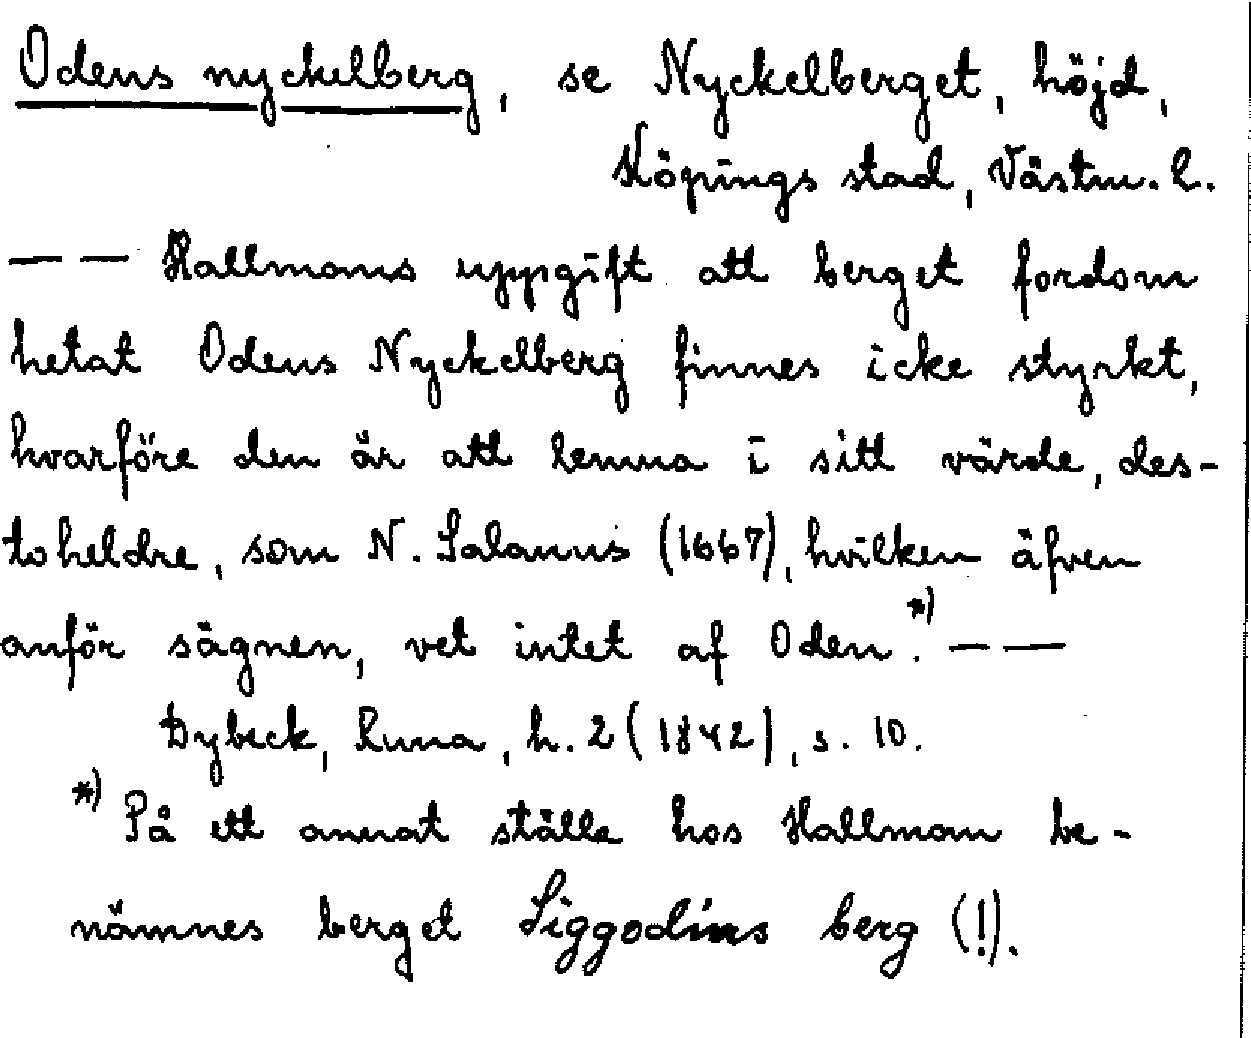 Odens nyckelberg, se Nyckelberget, höjd,
Köpings stad, Västm. l.
— — Hallmans uppgift att berget fordom
hetat Odens Nyckelberg finnes icke styrkt,
hvarföre den är att lemna i sitt värde, des-
toheldre, som N. Salanus (1667), hvilken äfven
anför sägnen, vet intet af Oden.*) — —
Dybeck, Runa, h. 2 (1842), s. 10.
*) På ett annat ställe hos Hallman be-
nämnes berget Siggodins berg (!).